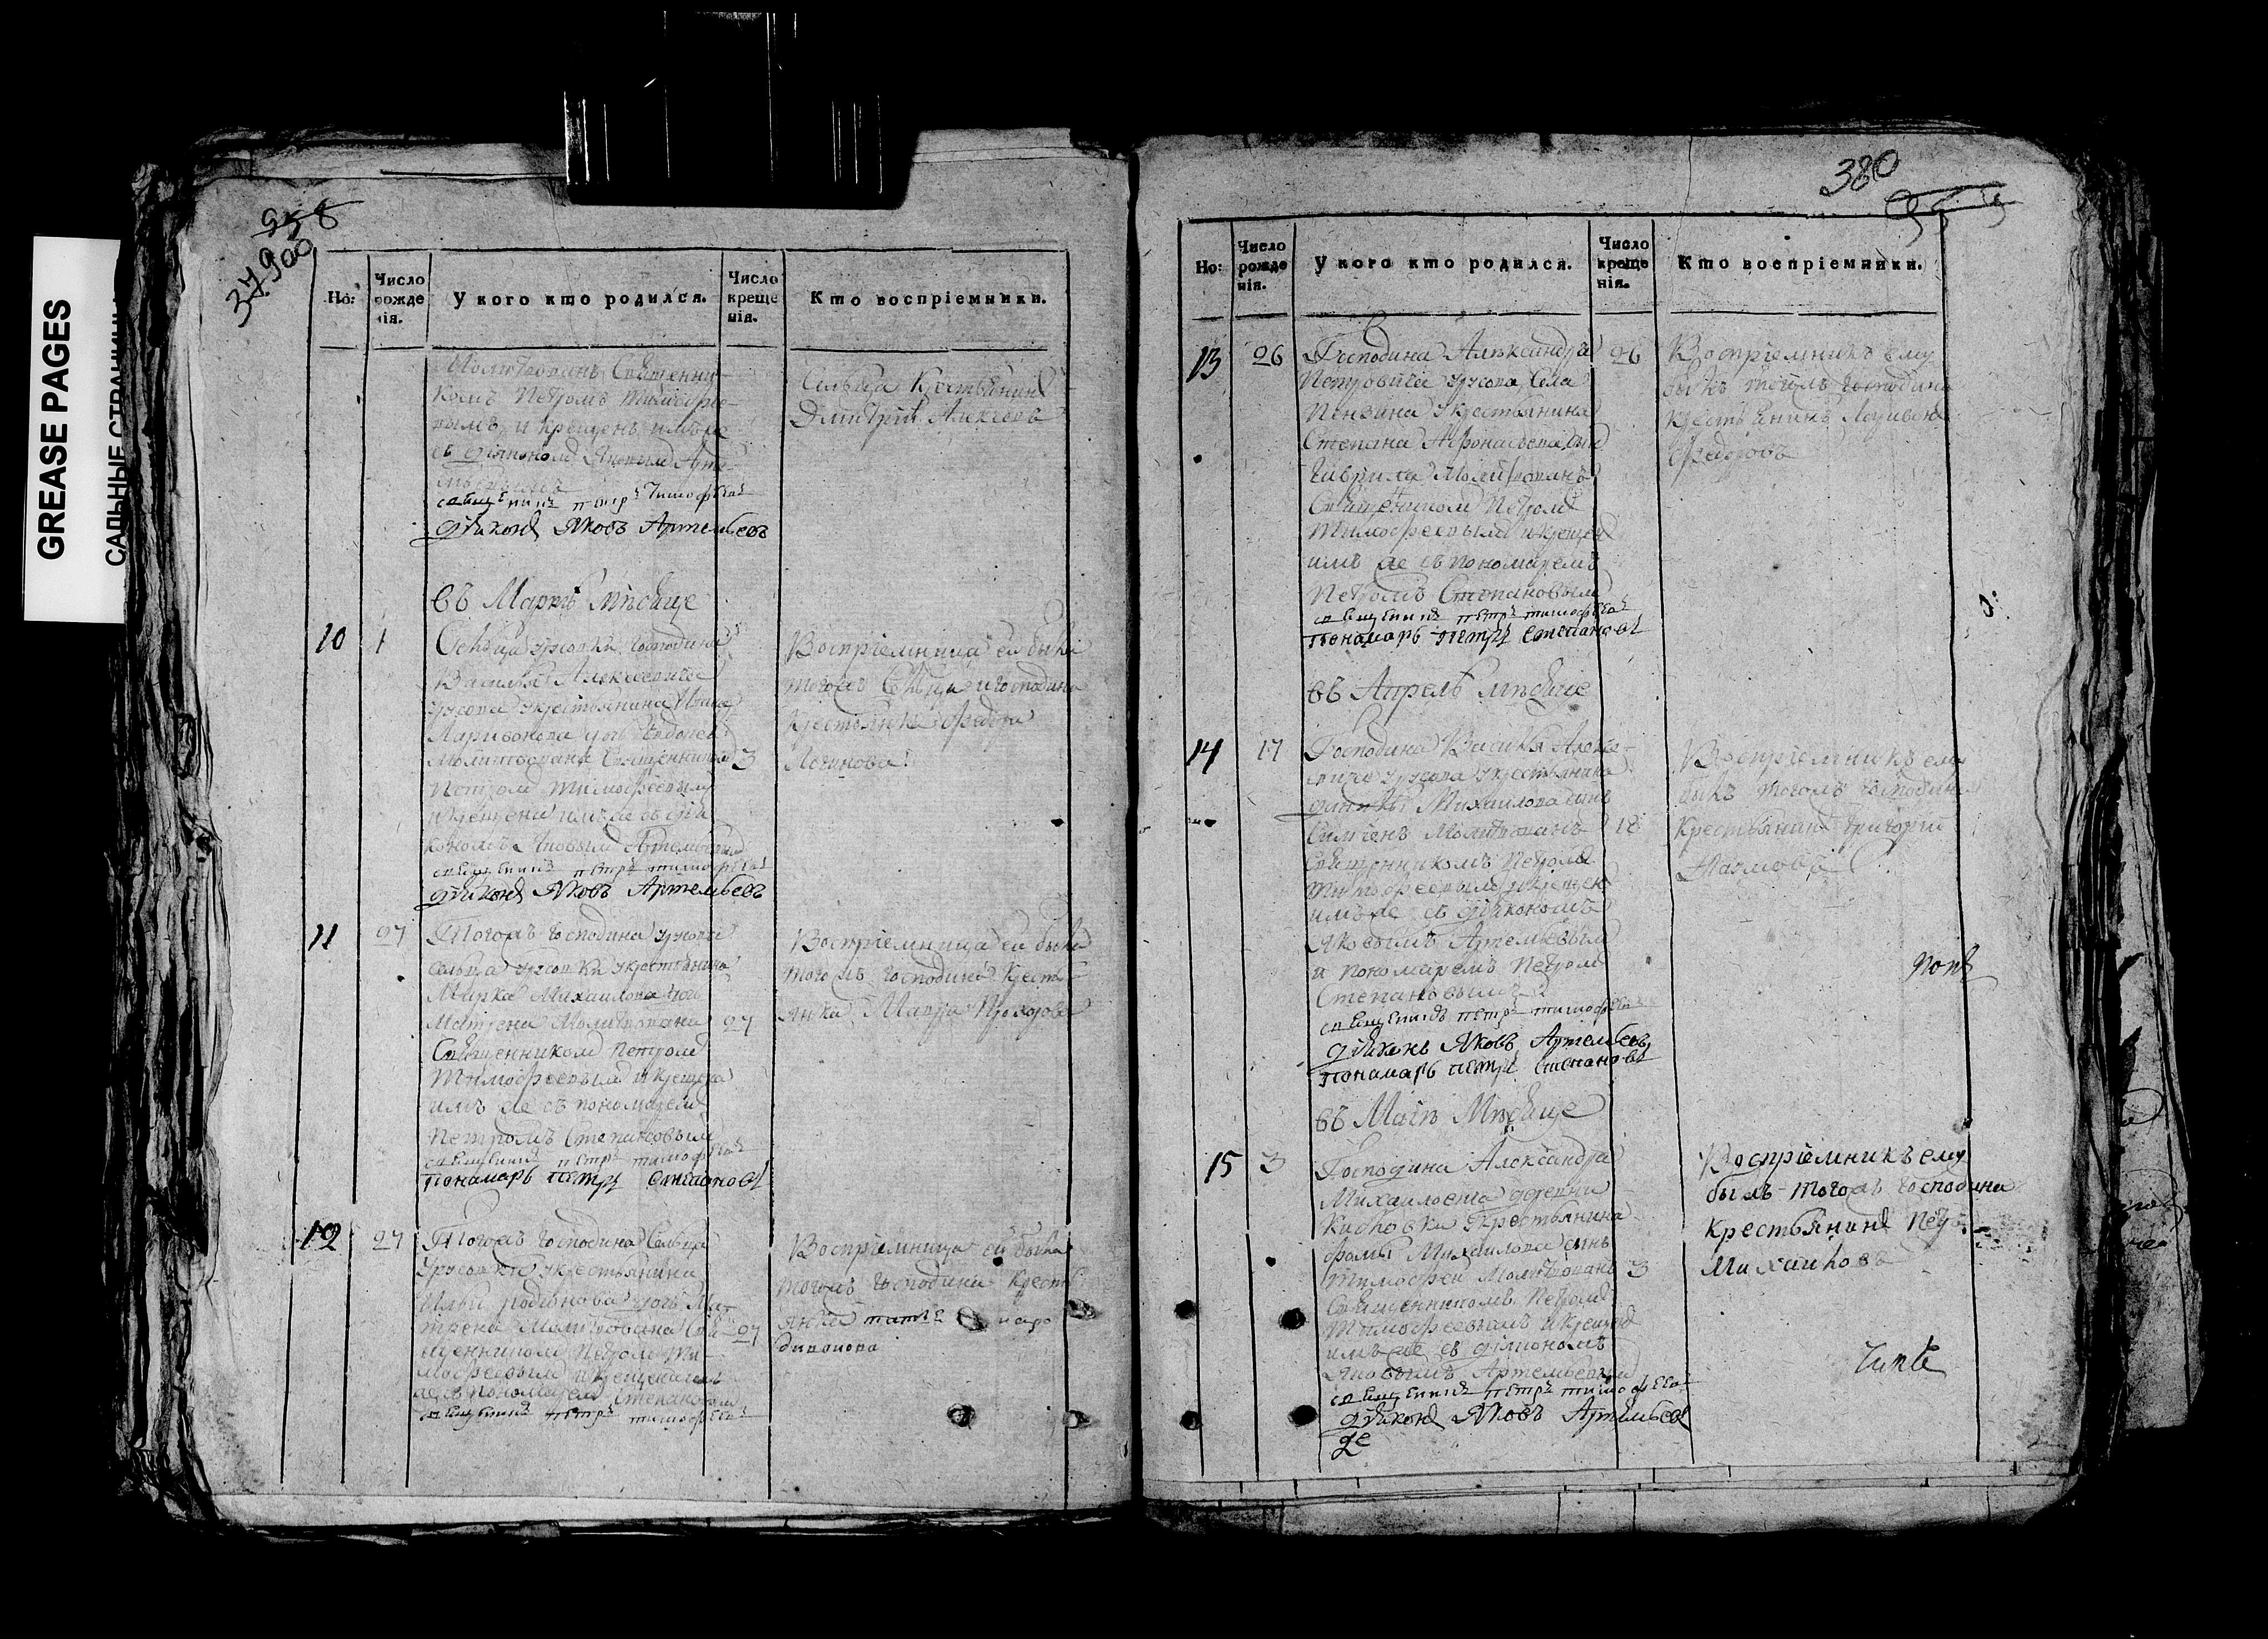 GREASE PAGES
САЛЬНЫЕ
958
900
379
Но:
Число рожденія.
У кого кто родился.
Число крещенія.
Кто воспріемники.
Молитвованъ Священни-
комъ Петромъ Тимофее-
вымъ и крещенъ имъ же
съ діякономъ Яковым Арте-
священникъ петръ тимофеевъ
діяконъ Яковъ Артемьевъ
сельца Крестьянинъ
Дмитрий Алексеевъ
въ Мартѣ Мѣсяце
10
1
Сельца урусовки господина
Василья Алексеевича
урусова у крестьянина
Ларионова дочь Евдокея
Молитвована Священникомъ
3
Петром Тимофеевым
и крещена имъ же съ дїа
кономъ Яковым Артемьевым
священникъ петръ тимофеевъ
діяконъ Яковъ Артемьевъ
Воспріемница ей была
тогожъ Сельца и господина
крестьянка Федора
Логинова
11
27
Тогожъ господина урусова
сельца урусовки у крестьянина
Марка Михаилова дочь
Матрена Молитвована
27
Священником петром
Тимофеевым и крещена
имъ же съ пономарем
Петромъ Степановым
священникъ петръ тимофеевъ
понамарь петръ степановъ
Воспріемница ей была
тогожъ господина крестья
янка Марja Прохорова
12
27
Тогожъ господина Сельца
Урусовки у крестьянина
Ильи родионова дочь Ма-
трена Молитвована Свя-
27
щенником Петром Ти-
мофеевым и крещена имъ
же съ пономарем Степановым
священникъ петръ тимофеевъ
Воспріемница ей была
тогожъ господина Кресть
янка
380
Но:
Число рожденія.
У кого кто родился.
Число крещенія.
Кто воспріемники.
13
26
Господина Александра
26
Петровича урусова Села
у крестьянина
Степана Афонасьева сынъ
Гаврила Молитвованъ
Священником Петром
Тимофеевым и крещен
имъ же съ пономаремъ
Петромъ Степановым
священникъ петръ тимофеевъ
понамарь петръ степановъ
Воспріемникъ ему
былъ тогожъ господина
крестьянинъ
Федоровъ
въ Апрелѣ мѣсяце
14
17
Господина Василья Алексе-
вича урусова у крестьянина
Данилы Михаилова сынъ
Симионъ Молитвованъ
18
Священникомъ Петромъ
Тимофеевым и крещен
имъ же съ діякономъ
Яковымъ Артемьевым
и пономаремъ Петромъ
Степановымъ
священникъ петръ тимофеевъ
діяконъ Яковъ Артемьевъ
понамарь петръ степановъ
Воспріемникъ ему
былъ тогожъ господина
Крестьянинъ Григорій
Наумовъ
попъ
въ Маіѣ Мѣсяце
15
3
Господина Александра
Михаиловича деревни
у крестьянина
фомы Михаилова сынъ
Тимофей Молитвованъ
3
Священникомъ Петромъ
Тимофеевымъ и крещенъ
имъ же съ діякономъ
Яковымъ Артемьевым
священникъ петръ тимофеевъ
діяконъ Яковъ Артемьевъ
Воспріемникъ ему
былъ тогожъ господина
Крестьянинъ Петръ
Михаиловъ